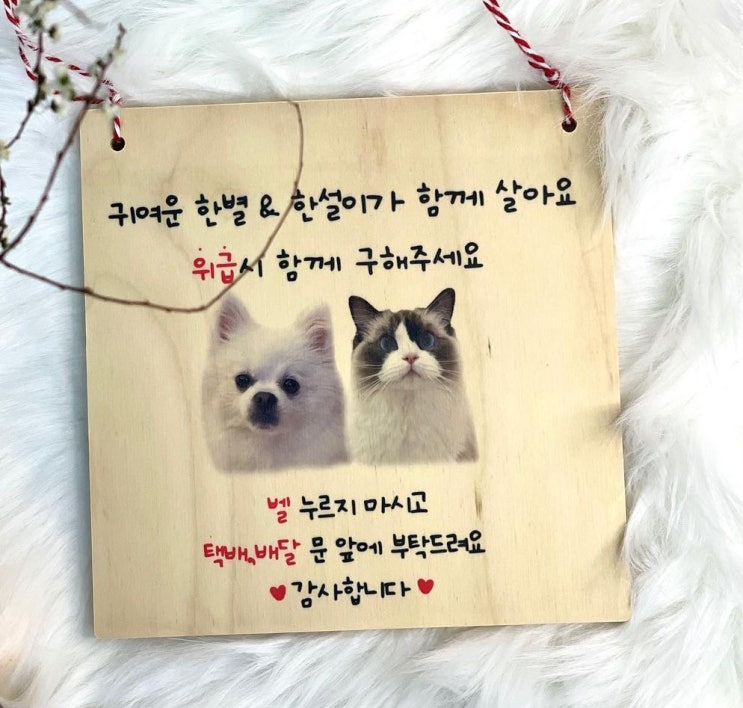 귀여운 한별 & 한설이가 함께 살아요
위급시 함께 구해주세요
벨 누르지 마시고
택배,배달 문 앞에 부탁드려요
♥감사합니다♥